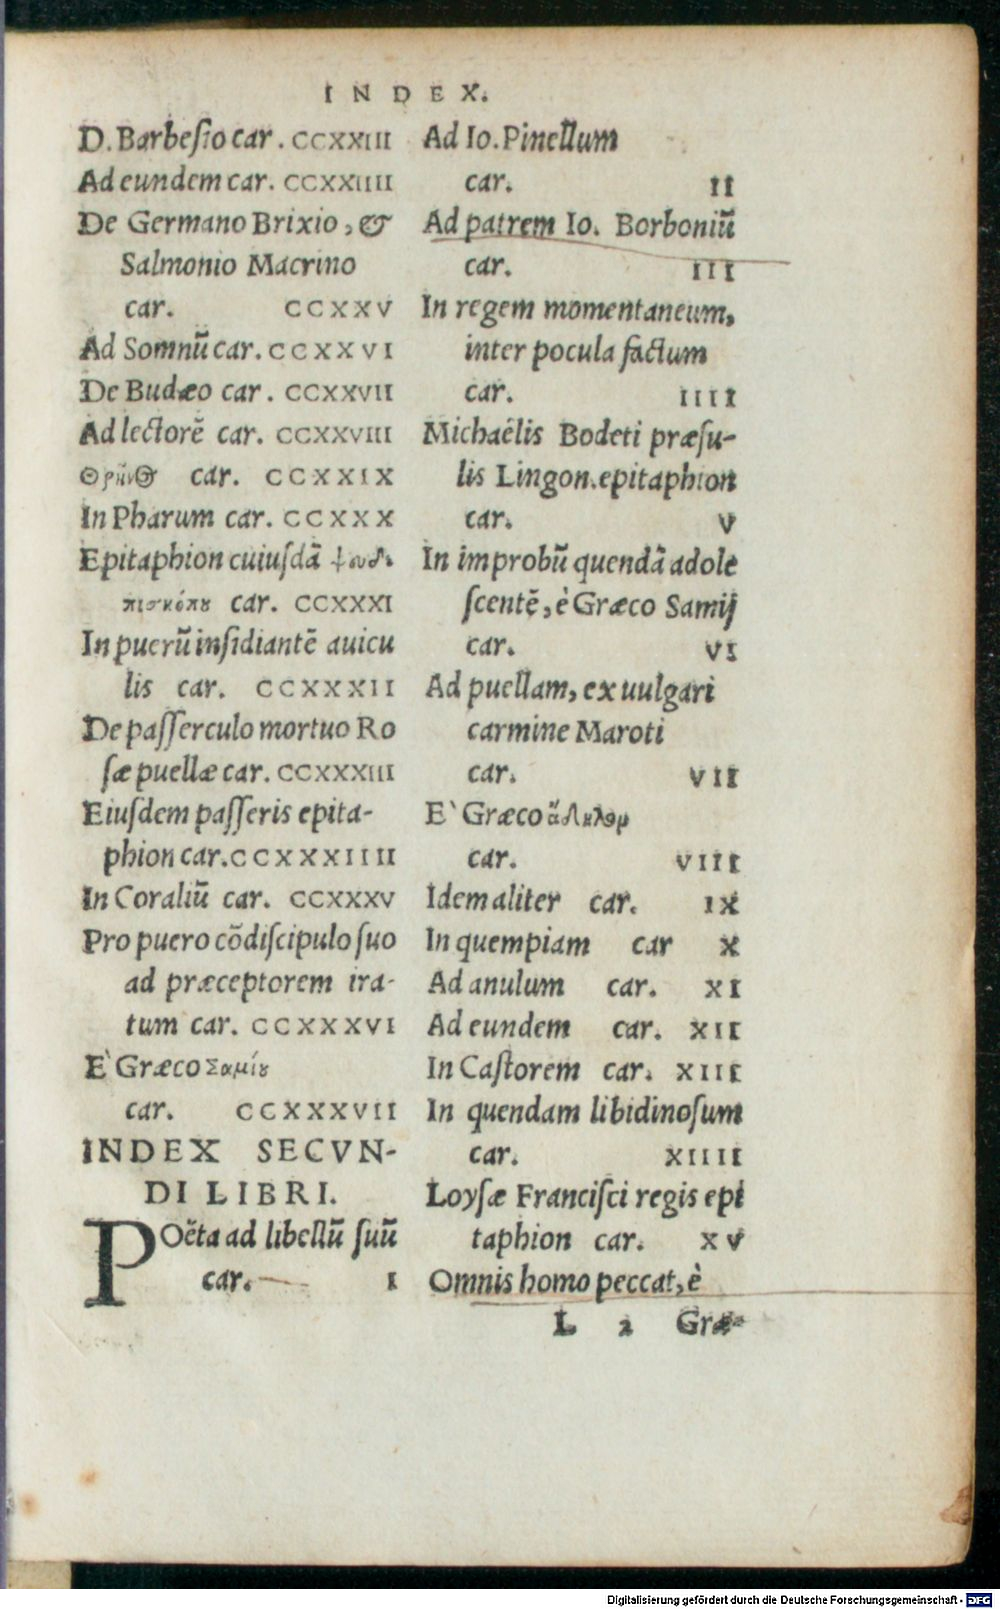 INDEX.
D. Barbeſio car. CCXXIII
Ad eundem car. CCXXIIII
De Germano Brixio, &
Salmonio Macrino
car. CCXXV
Ad Somnũ car. CCXXVI
De Budæo car. CCXXVII
Ad lectorẽ car. CCXXVIII
Θρῆνος car. CCXXIX
In Pharum car. CCXXX
Epitaphion cuiuſdã ψευδε
πισκόπου car. CCXXXI
In puerũ inſidiantẽ auicu
lis car. CCXXXII
De paſſerculo mortuo Ro
ſæ puellæ car. CCXXXIII
Eiuſdem paſſeris epita-
phion car. CCXXXIIII
In Coraliũ car. CCXXXV
Pro puero cõdiſcipulo ſuo
ad præceptorem ira-
tum car. CCXXXVI
E` Græco Σαμίου
car. CCXXXVII
INDEX SECVN-
DI LIBRI.
POëta ad libellũ ſuũ
car. I
Ad Io. Pinellum
car. II
Ad patrem Io. Borboniũ
car. III
In regem momentaneum,
inter pocula factum
car. IIII
Michaëlis Bodeti præſu-
lis Lingon. epitaphion
car. V
In improbũ quendã adole
ſcentẽ, è Græco Samij
car. VI
Ad puellam, ex uulgari
carmine Maroti
car. VII
E` Græco ἄδηλον
car. VIII
Idem aliter car. IX
In quempiam car X
Ad anulum car. XI
Ad eundem car. XII
In Caſtorem car. XIII
In quendam libidinoſum
car. XIIII
Loyſæ Franciſci regis epi
taphion car. XV
Omnis homo peccat, è
L 2 Græ-
Digitalisierung gefördert durch die Deutsche Forschungsgemeinschaft - DFG